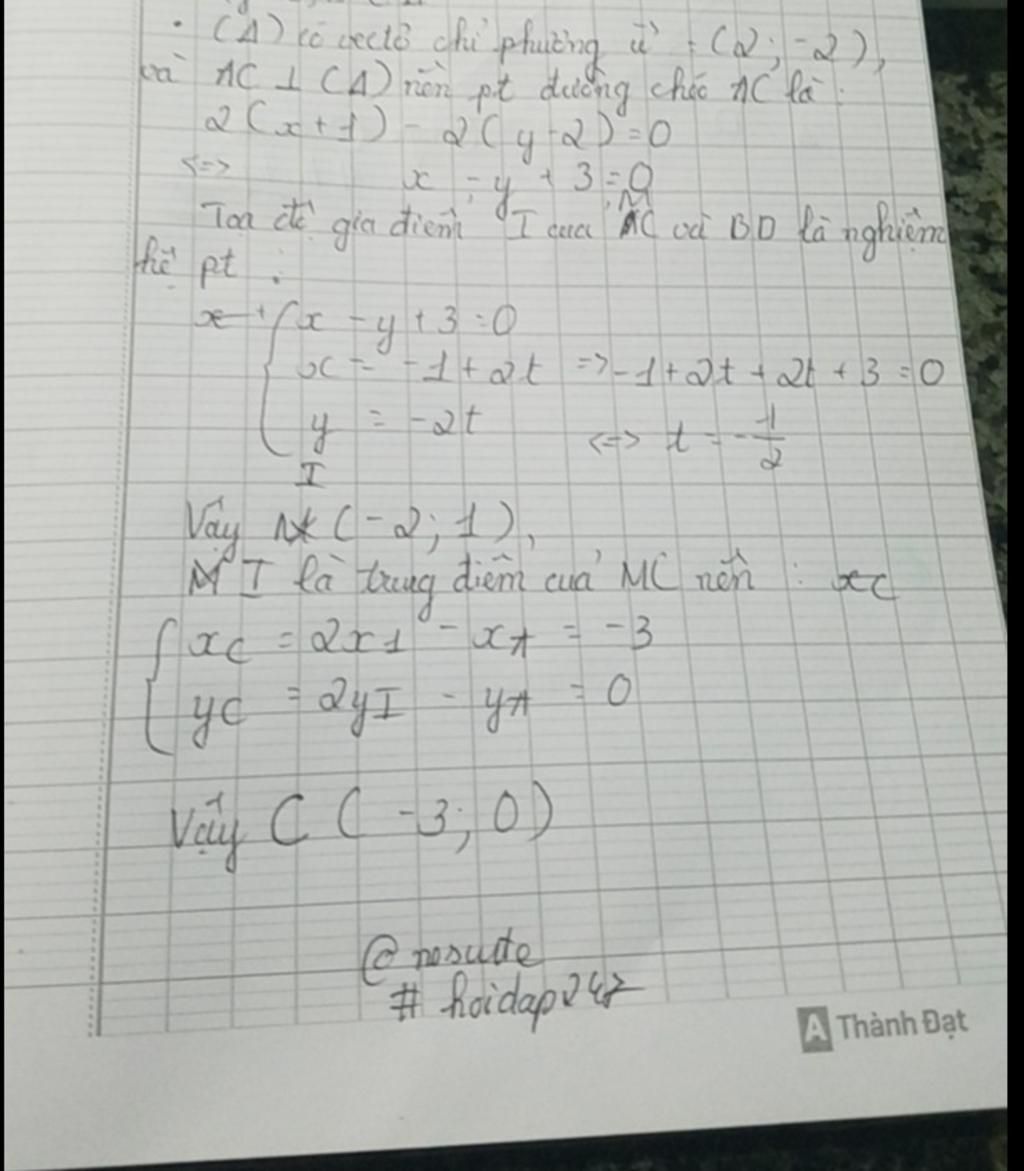 • (Δ) có vectơ chỉ phương u⃗ = (2; -2),
và AC ⊥ (Δ) nên pt đường chéo AC là:
2(x+1) - 2(y-2) = 0
<=> x - y + 3 = 0
Toạ độ gia điểm I của AC và BD là nghiệm
hệ pt :
x - y + 3 = 0
x = -1 + 2t => -1 + 2t + 2t + 3 = 0
y = -2t <=> t = -1/2
I
Vậy (-2; 1),
I là trung điểm của MC nên : xC
xC = 2xI - xA = -3
yC = 2yI - yA = 0
Vậy C (-3; 0)
@nosutte
# hoidap247
A Thành Đạt